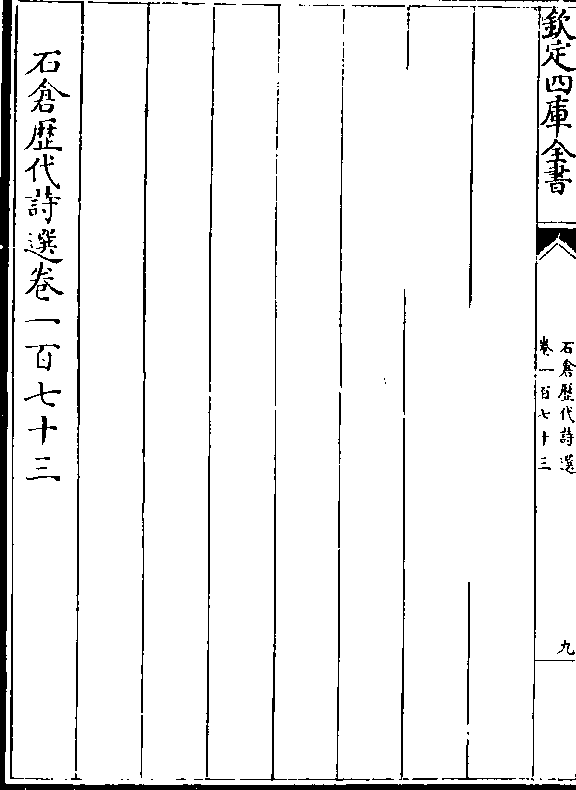 欽定四庫全書
石倉歴代詩選
卷一百七十三
九
石倉歴代詩選卷一百七十三